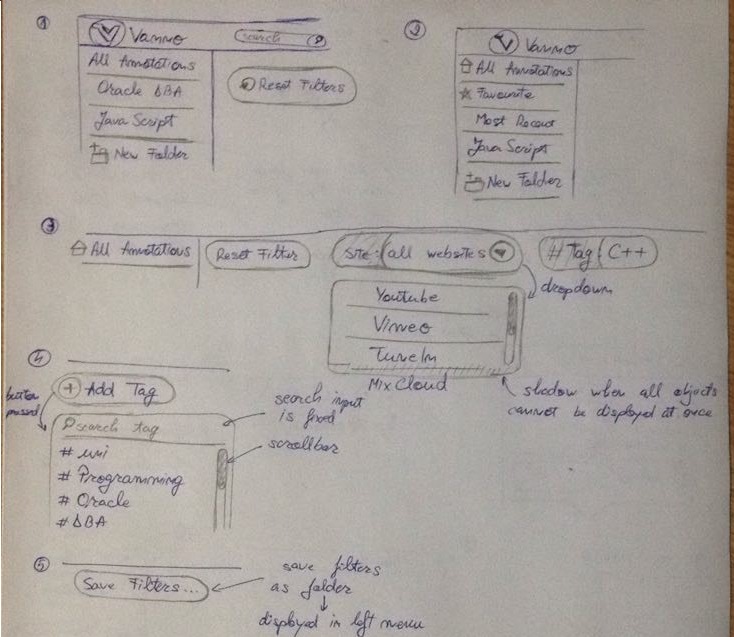 1
Vanmo
search
All Annotations
Oracle DBA
Reset Filters
Java Script
New Folder
2
Vanmo
All Annotations
Favourite
Most Recent
Java Script
New Folder
3
All Annotations
Reset Filter
Site: all websites
# Tag: C++
dropdown
Youtube
Vimeo
TuneIn
MixCloud
shadow when all objects
cannot be displayed at once
4
+ Add Tag
button
pressed
search input
is fixed
search tag
scrollbar
# uni
# Programming
# Oracle
# DBA
5
Save Filters...
save filters
as folder
displayed in left menu